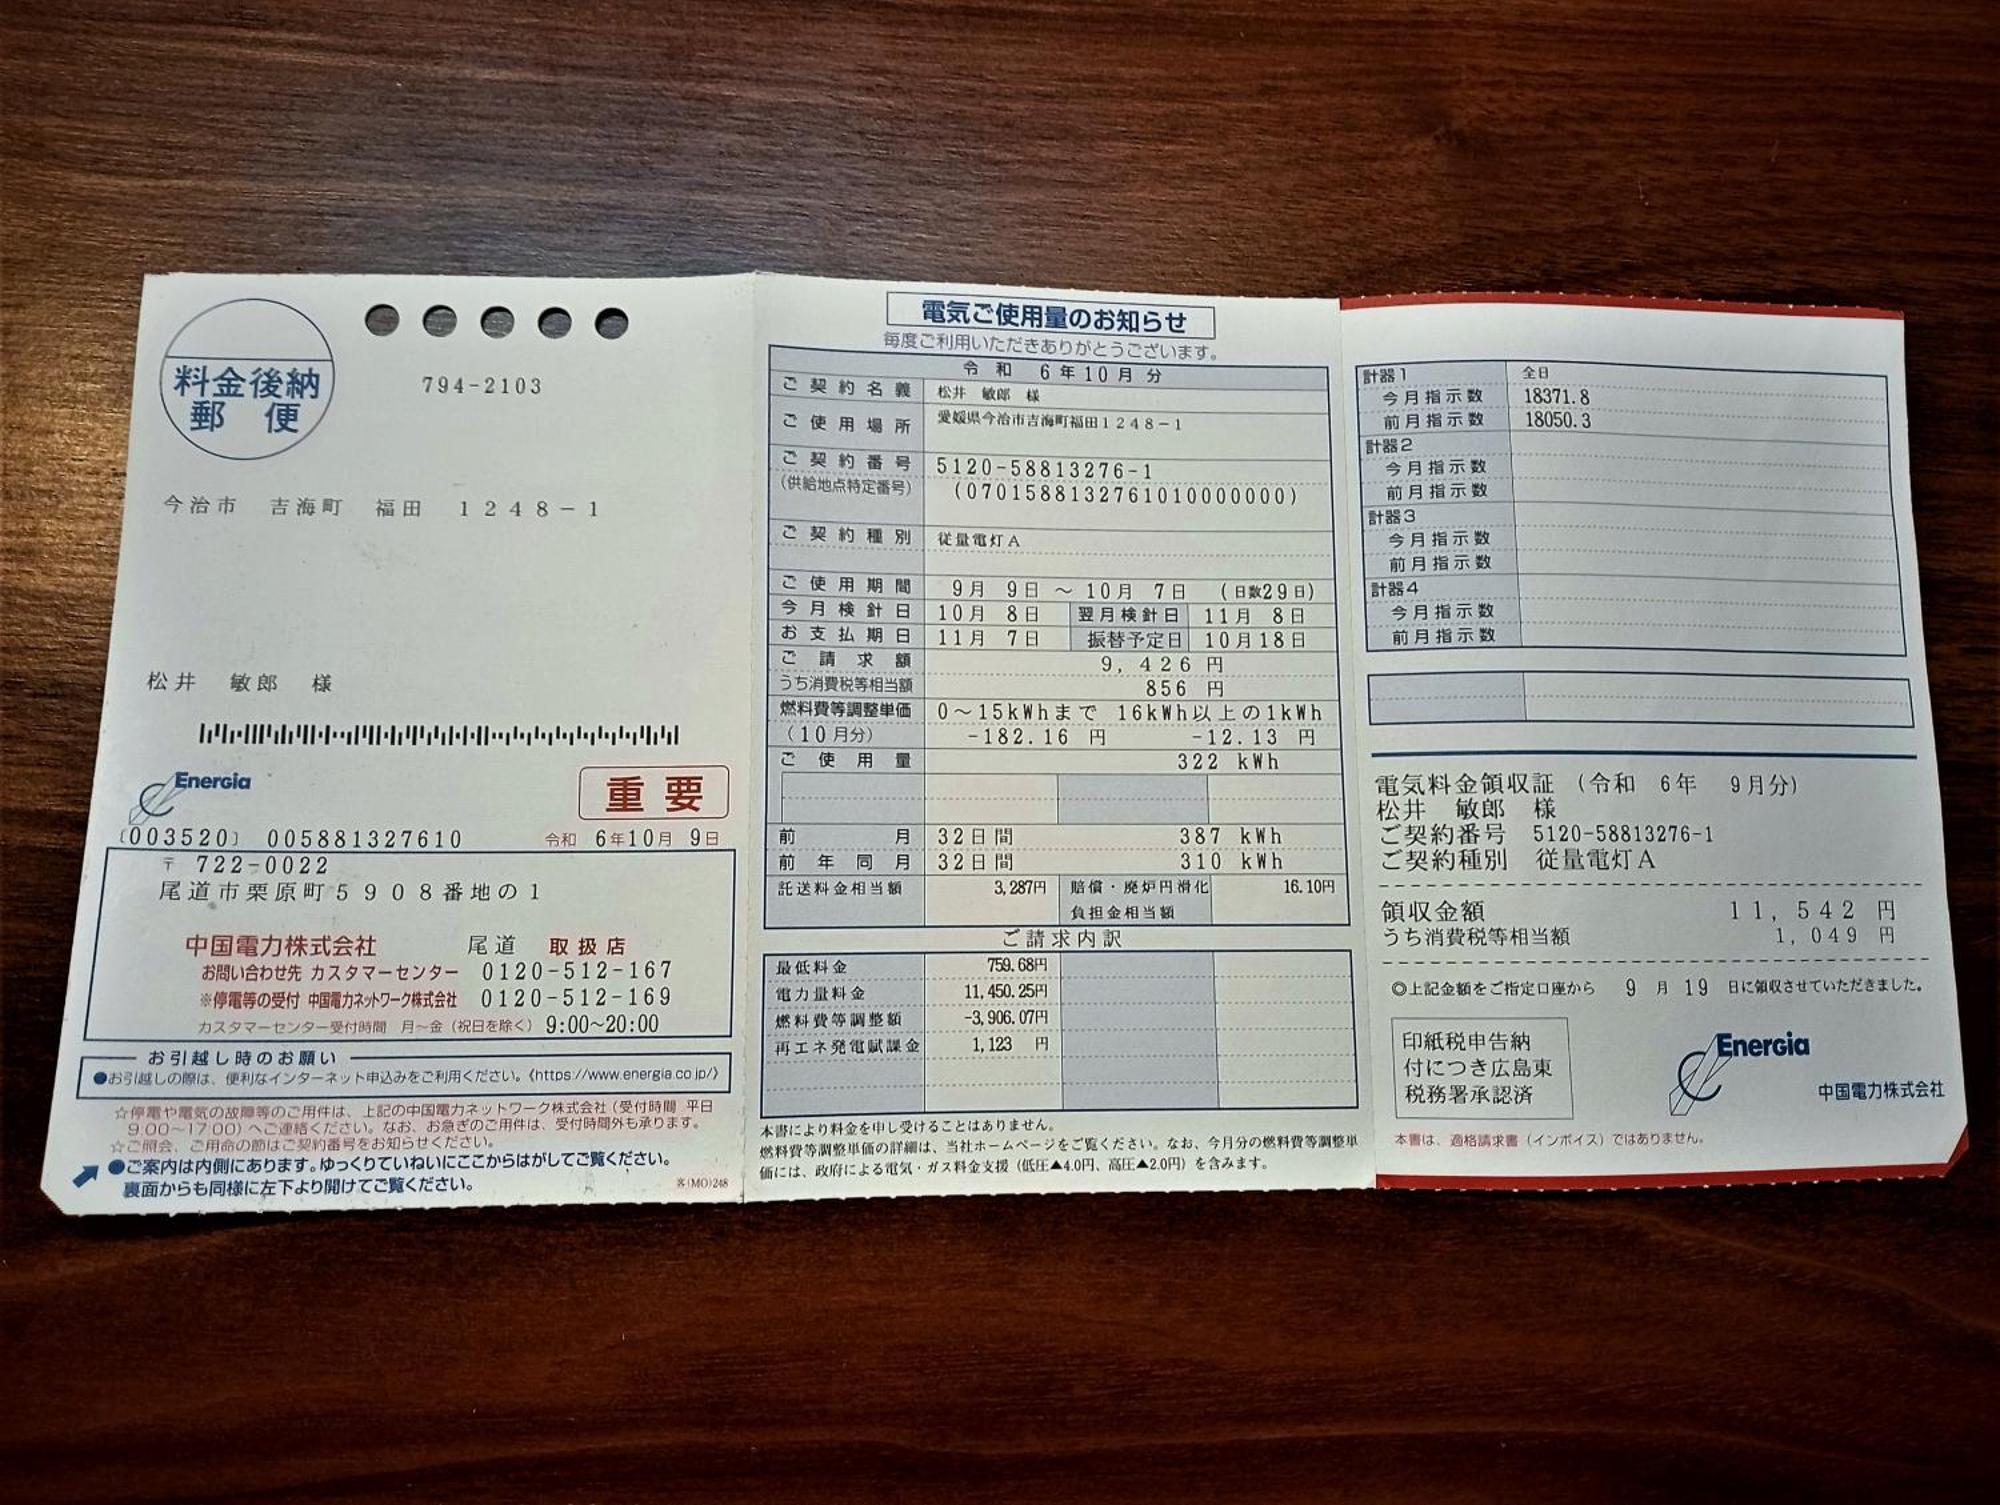 料金後納
郵便
794-2103
今治市 吉海町 福田 1248-1
松井 敏郎 様
Energia
重要
(003520) 005881327610 令和 6年10月 9日
〒 722-0022
尾道市栗原町5908番地の1
中国電力株式会社 尾道 取扱店
お問い合わせ先 カスタマーセンター 0120-512-167
※停電等の受付 中国電力ネットワーク株式会社 0120-512-169
カスタマーセンター受付時間 月~金(祝日を除く) 9:00~20:00
お引越し時のお願い
●お引越しの際は、便利なインターネット申込みをご利用ください。《https://www.energia.co.jp/》
☆停電や電気の故障等のご用件は、上記の中国電力ネットワーク株式会社(受付時間 平日
9:00~17:00)へご連絡ください。なお、お急ぎのご用件は、受付時間外も承ります。
☆ご照会、ご用命の節はご契約番号をお知らせください。
●ご案内は内側にあります。ゆっくりていねいにここからはがしてご覧ください。
裏面からも同様に左下より開けてご覧ください。
客(MO)248
電気ご使用量のお知らせ
毎度ご利用いただきありがとうございます。
令和 6年10月分
ご契約名義 松井 敏郎 様
ご使用場所 愛媛県今治市吉海町福田1248-1
ご契約番号 5120-58813276-1
(供給地点特定番号) (0701588132761010000000)
ご契約種別 従量電灯A
ご使用期間 9月 9日 ~ 10月 7日 (日数29日)
今月検針日 10月 8日 翌月検針日 11月 8日
お支払期日 11月 7日 振替予定日 10月18日
ご請求額 9,426 円
うち消費税等相当額 856 円
燃料費等調整単価 0~15kWhまで 16kWh以上の1kWh
(10月分) -182.16 円 -12.13 円
ご使用量 322 kWh
前月 32日間 387 kWh
前年同月 32日間 310 kWh
託送料金相当額 3,287円 賠償・廃炉円滑化 16.10円
負担金相当額
ご請求内訳
最低料金 759.68円
電力量料金 11,450.25円
燃料費等調整額 -3,906.07円
再エネ発電賦課金 1,123 円
本書により料金を申し受けることはありません。
燃料費等調整単価の詳細は、当社ホームページをご覧ください。なお、今月分の燃料費等調整単
価には、政府による電気・ガス料金支援(低圧▲4.0円、高圧▲2.0円)を含みます。
計器1 全日
今月指示数 18371.8
前月指示数 18050.3
計器2
今月指示数
前月指示数
計器3
今月指示数
前月指示数
計器4
今月指示数
前月指示数
電気料金領収証 (令和 6年 9月分)
松井 敏郎 様
ご契約番号 5120-58813276-1
ご契約種別 従量電灯A
領収金額 11,542 円
うち消費税等相当額 1,049 円
◎上記金額をご指定口座から 9 月 19 日に領収させていただきました。
印紙税申告納
付につき広島東
税務署承認済
Energia
中国電力株式会社
本書は、適格請求書(インボイス)ではありません。